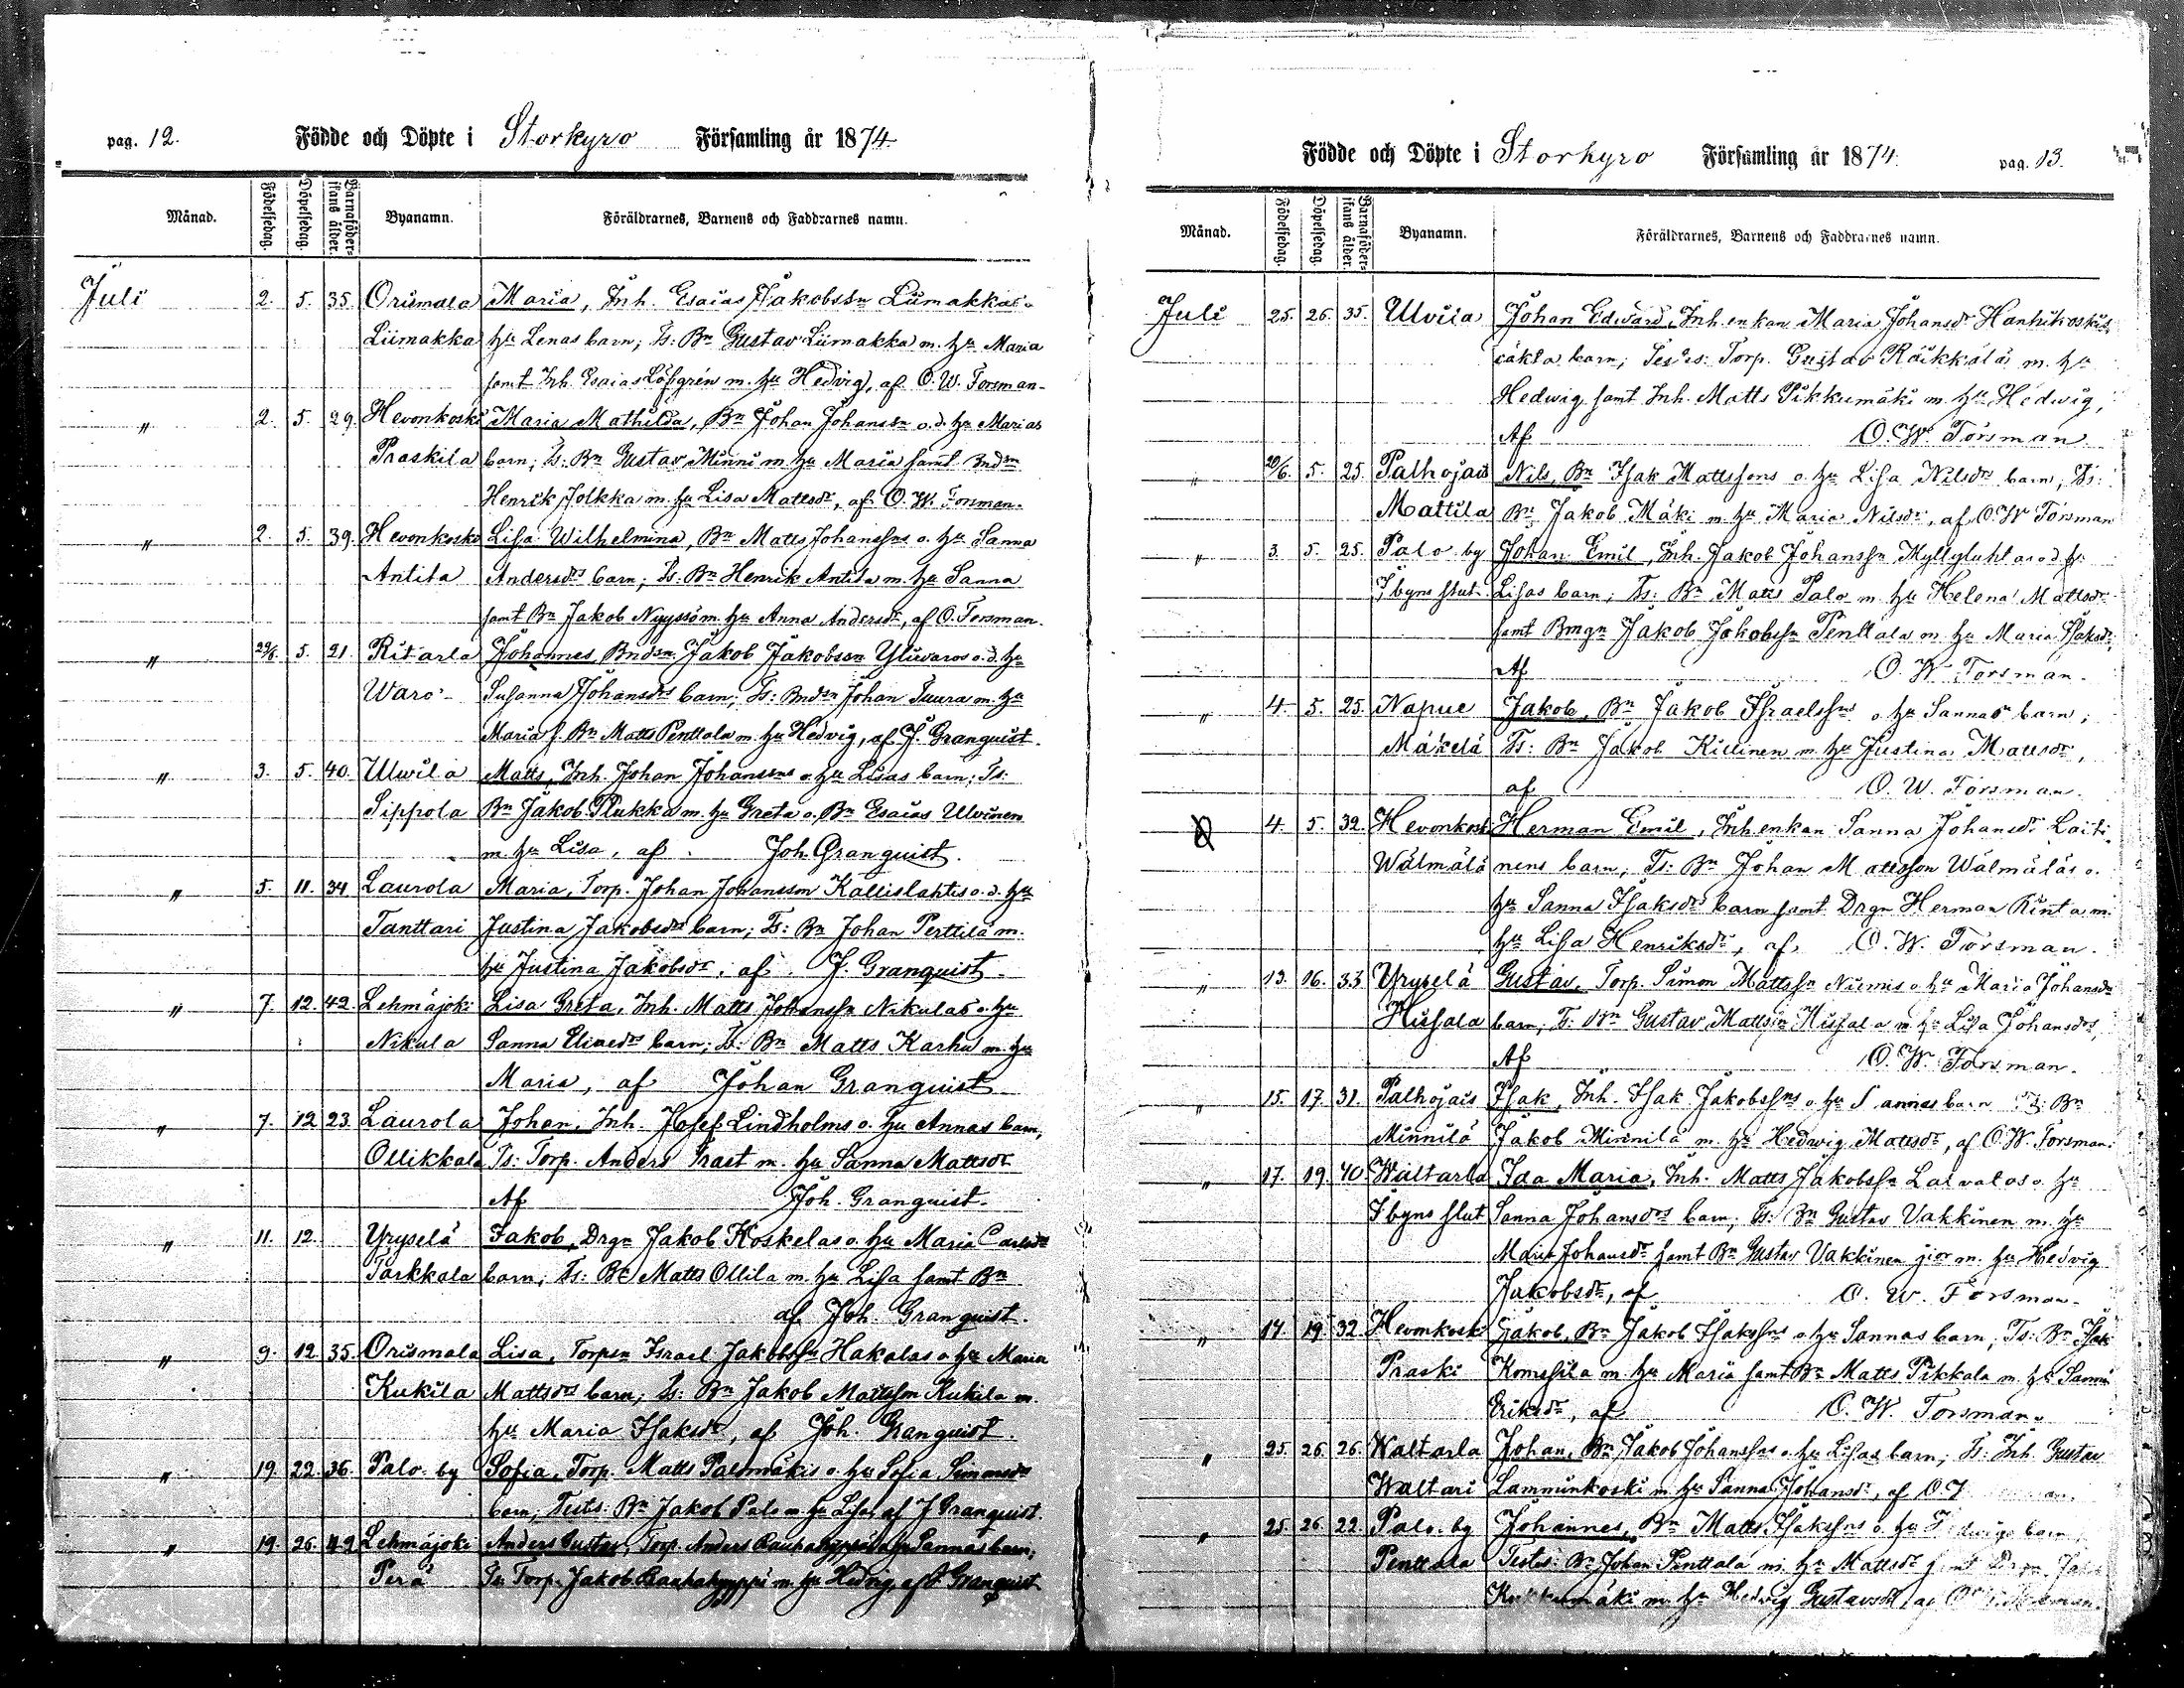 pag. 12.
Födde och Döpte i Storkyro Församling år 1874
Månad. Födelsedag. Döpelsedag. Barnaföderskans ålder. Byanamn. Föräldrarnes, Barnens och Faddrarnes namn.
Juli 2. 5. 35. Orismala Maria, Inh. Esaias Jakobssn Liimakkas o.
Liimakka hu Lenas barn; Ts: Bn Gustav Liimakka m. hu Maria
samt Inh. Esaias Löfgrén m. hu Hedvig, af O. W. Forsman.
" 2. 5. 29. Hevonkoski Maria Mathilda, Bn Johan Johanssn o. d. hu Marias
Praskila barn; Ts: Bn Gustav Minni m. hu Maria samt Bndsn
Henrik Jolkka m. hu Lisa Mattsdr, af O. W. Forsman.
" 2. 5. 39. Hevonkoski Lisa Wilhelmina, Bn Matts Johanssns o. hu Sanna
Antila Andersdrs barn; Ts. Bn Henrik Antila m. hu Sanna
samt Bn Jakob Nyyssö m. hu Anna Andersdr, af O. Forsman.
" 29/6. 5. 21. Ritarla Johannes, Bndsn Jakob Jakobssn Yliwaros o. d. hu
Waro Susanna Johansdrs barn; Ts: Bndsn Johan Tuura m. hu
Maria s. Bn Matts Penttala m. hu Hedvig, af J. Granquist.
" 3. 5. 40. Ulwila Matts, Inh. Johan Johanssns o hu Lisas barn; Ts:
Sippola Bn Jakob Plukka m. hu Greta o. Bn Esaias Ulvinen
m. hu Lisa, af Joh. Granquist.
" 5. 11. 34. Laurola Maria, Torp. Johan Johansson Kallislahtis o. d. hu
Tanttari Justina Jakobsdrs barn; Ts: Bn Johan Perttilä m.
hu Justina Jakobsdr, af J. Granquist.
" 7. 12. 42. Lehmäjoki Lisa Greta, Inh. Matts Johanssn Nikulas o. hu
Nikula Sanna Eliaedrs barn; Ts: Bn Matts Karhu m. hu
Maria, af Johan Granquist
" 7. 12 23. Laurola Johan, Inh. Josef Lindholms o. hu Annas barn,
Ollikkala Ts: Torp. Anders Trast m. hu Sanna Mattsdr
Af Joh. Granquist.
" 11. 12. Yryselä Jakob, Drgn Jakob Koskelas o. hu Maria Carlsdrs
Tarkkala barn; Ts: Bn Matts Ollila m. hu Lisa samt Bn
af Joh. Granquist.
" 9. 12 35. Orismala Lisa, Torpsn Israel Jakobssn Hakalas o hu Maria
Kukila Mattsdrs barn; Ts: Bn Jakob Mattsson Kukila m.
hu Maria Isaksdr, af Joh. Granquist.
" 19. 22. 36. Palo by Sofia, Torp. Matts Palomäkis o. hu Sofia Simonsdrs
barn; Tests: Bn Jakob Palo m hu Lisa, af J Granquist.
" 19. 26. 42 Lehmäjoki Anders Gustav, Torp. Anders Rauhakyppä o hu Sannas barn;
Perä Ts Torp. Jakob Rauhakyppi m. hu Hedvig, af J. Granquist
Födde och Döpte i Storkyro Församling år 1874. pag. 13.
Månad. Födelsedag. Döpelsedag. Barnaföderskans ålder. Byanamn. Föräldrarnes, Barnens och Faddrarnes namn.
Juli 25. 26. 35. Ulvila Johan Edvard, Inh. enkan Maria Johansdr Hanhikoskis
oäkta barn; Testes: Torp. Gustav Räikkälä m. hu
Hedwig samt Inh. Matts Pikkumäki m. hu Hedwig,
Af O. W. Forsman.
" 29/6. 5. 25. Palhojais Nils, Bn Isak Mattssons o. hu Lisa Nilsdrs barn; Ts:
Mattila Bn Jakob Mäki m hu Maria Nilsdr, af O. W Forsman
" 3. 5. 25. Palo by Johan Emil, Inh. Jakob Johanssn Myllyluhtas o d. hu
I byns slut Lisas barn; Ts: Bn Matts Palo m. hu Helena Mattsdr
samt Bmgn Jakob Jakobssn Penttala m. hu Maria Isaksdr,
Af O. W. Forsman.
" 4. 5. 25. Napue Jakob, Bn Jakob Israelssns o hu Sannas barn;
Mäkelä Ts: Bn Jakob Killinen m. hu Justina Mattsdr,
af O. W. Forsman.
4. 5. 32. Hevonkoski Herman Emil, Inh. enkan Sanna Johansdr Laiti-
Wälmälä nens barn; Ts: Bn Johan Mattsson Wälmäläs o.
hu Sanna Isaksdrs barn samt Drgn Herman Rinta m.
hu Lisa Henriksdr, af O. W. Forsman.
" 13. 16. 33 Yryselä Gustav, Torp. Simon Mattssn Niemis o hu Maria Johansdrs
Hissala barn; Ts: Bn Gustav Mattssn Hissala m hu Lisa Johansdr,
Af O. W. Forsman.
" 15. 17. 31. Palhojais Isak, Inh. Isak Jakobssns o. hu Sannas barn Ts: Bn
Minnilä Jakob Minnilä m. hu Hedwig Mattsdr, af O. W. Forsman.
" 17. 19. 40. Waltarla Ida Maria, Inh. Matts Jakobssn Lalvalas o. hu
I byns slut Sanna Johansdrs barn; Ts: Bn Gustav Vakkinen m. hu
Maria Johansdr samt Bn Gustav Vakkinen jior m. hu Hedvig
Jakobsdr, af O. W. Forsman.
" 14 19 32 Hevonkoski Jakob, Bn Jakob Isakssns o hu Sannas barn; Ts: Bn Isak
Praski m. hu Maria samt Bn Matts Pikkala m. hu Sanna
Eriksdr, af O. W. Forsman.
" 25. 26. 26. Waltarla Johan, Bn Jakob Johanssns o. hu Lisas barn; Ts: Inh. Gustav
Waltari Lamminkoski m. hu Sanna Johansdr, af O.
" 25. 26. 22. Palo by Johannes, Bn Matts Isakssns o. hu Hedwigs barn,
Penttala Testes: Bn Johan Penttala m. hu Mattsdr samt Drgn
m. hu Hedwig Gustavsdr, af O. W. Forsman.